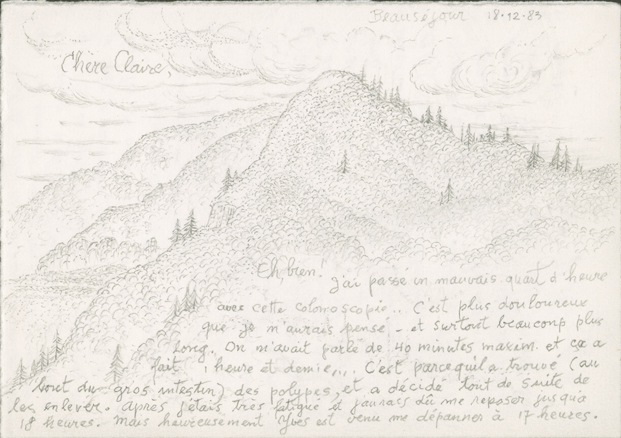 Beauséjour 18.12.83
Chère Claire,
Eh bien! j'ai passé un mauvais quart d'heure
avec cette colonoscopie.. C'est plus douloureux
que je n'aurais pensé - et surtout beaucoup plus
long.. On m'avait parlé de 40 minutes maxim. et ça a
fait 1 heure et demie... C'est parcequ'il a trouvé (au
bout du gros intestin) des polypes, et a décidé tout de suite de
les enlever. Après j'étais très fatigué et j'aurais dû me reposer jusqu'à
18 heures. Mais heureusement Yves est venu me dépanner à 17 heures.